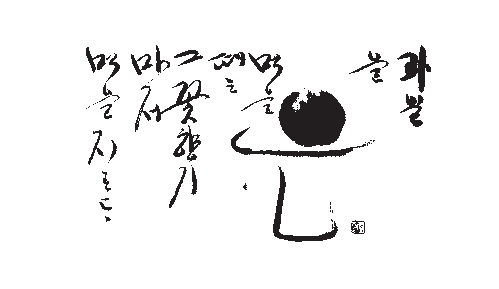 과일
을
먹을
때는
그 꽃향기
마저
먹을지로다